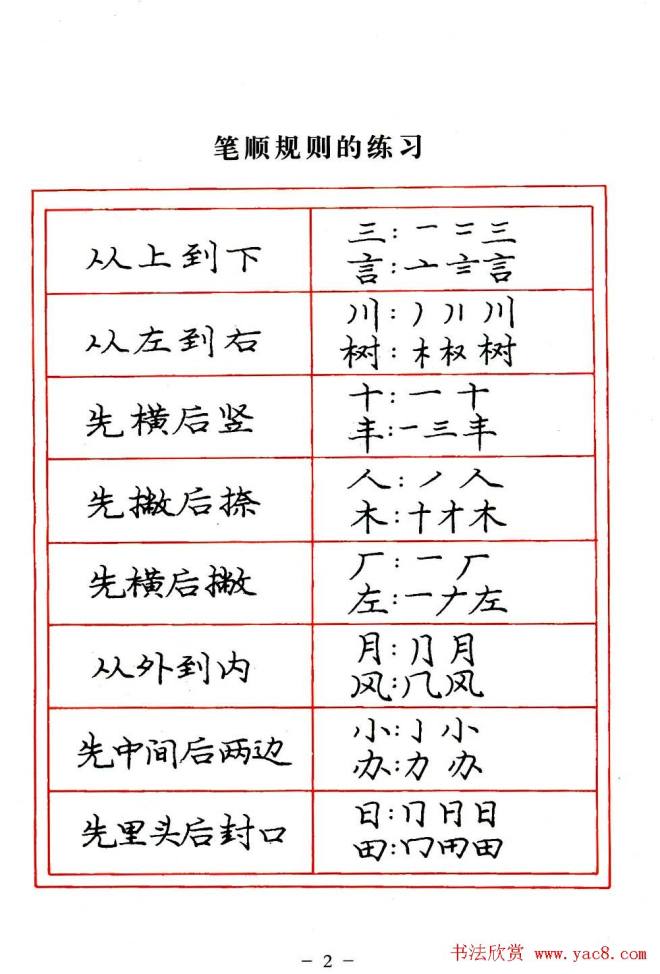 笔顺规则的练习
从上到下
三：一 二 三
言：亠 亖 言
从左到右
川：丿 丿丨 川
树：木 权 树
先横后竖
十：一 十
丰：一 三 丰
先撇后捺
人：丿 人
木：十 才 木
先横后撇
厂：一 厂
左：一 𠂇 左
从外到内
月：⺆ 月
风：几 风
先中间后两边
小：亅 小
办：力 办
先里头后封口
日：冂 月 日
田：冂 用 田
- 2 -
书法欣赏 www.yac8.com